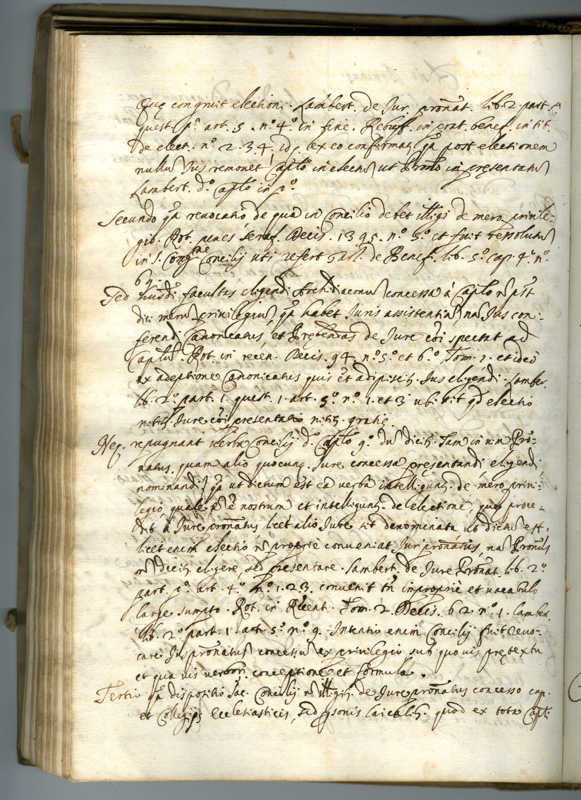 Quę congruit election: Lambert. de Iur. pronat. lib. 2. part. p.ª
quest. p.ª art. 5. n.º 4.º in fine. Rebuff. in prat. benef. in tit.
de elect. n.º 2. 3. 4. id, ex eo confirmat, q.ª post electionem
nullũ ius remanet Capło in electũ ut Prono in presentatũ
Lambert. d.º Capło in p.º
Secundo q.ª revocatio de qua in Concilio debet illigi de mero privile-
gio. Rot. penes Seraf. Decis. 1395. n.º 5.º et fuit ressolutũ
in S. Congne Concilij uti refert Gar. de Benef. lib. 5.º cap. 4.º n.º
Sed huiusdi. facultas eligendi Archidiaconũ concessa à Capło nõ est
dici merũ privilegiũ, q.ª habet iuris assistentiã, nã ius con-
ferendi Canonicatus et Prebendas de Iure cõi spectat ad
Capłũ. Rot. in recen. Decis. 94. n.º 5.º et 6.º Tom. 1. et ideo
ex adeptione Canonicatus quis et adipiscit. ius eligendi. Lamber.
lib. 2.º part. 1. quest. 1. art. 5.º n.º 1. et 3. ubi sit qd electio
nititur iure cõi presentatio nitit. gratię
Neq. repugnant verba Concilij d.º Capło 9.º dũ dicit. Tam in iure Pro-
natus, quam alio quocunq. iure concessa pręsentandi eligendi
nominandi, q.ª ut dictum est ea verba intelligunt. de mero privi-
legio quale nõ è nostrum et intelligunt. de electione, quę proce-
dit à Iure pronatus licet alio iure sit denominata ut dictũ est,
licet enim electio nõ proprie conveniat iuri pronatus, nã Pronus
nõ dicit. eligere sed presentare. Lambert. de Iure Pronat. lib. 2.º
part. p.ª art. 4.º n.º 1. 2. 3. convenit tñ improprie et vocabulo
large sumpto. Rot. in Recent. Tom. 2. Decis. 62. n.º 1. Lamber.
lib. 2.º part. 1. art. 5.º n.º 9. Intentio enim Concilij fuit revo-
care ius pronatus concessũ ex privilegio sub quovis pretextu
et qua vis verborũ conceptione et formula.
Tertio q.ª dispositio Sac. Concilij nõ illigit. de Iure pronatus concesso cap.
et Collegijs Ecclesiasticis, sed psonis laicalib. quod ex toto Capł.